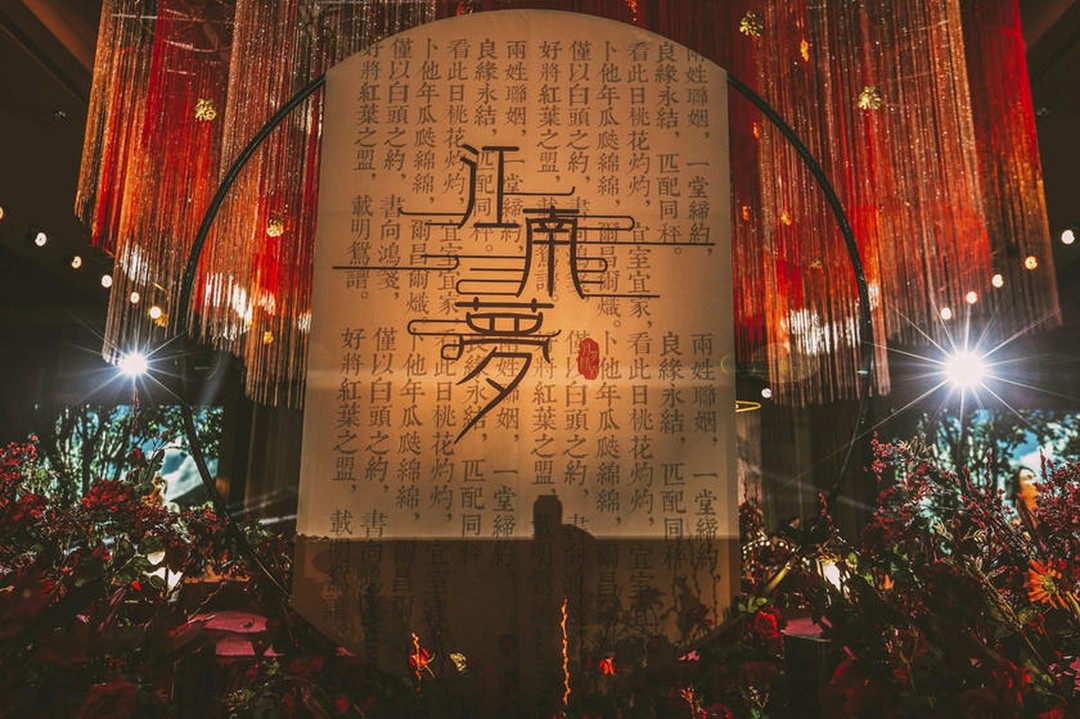 江南夢
兩姓聯姻,一堂締約,
良緣永結,匹配同秤。
看此日桃花灼灼,宜室宜家,
卜他年瓜瓞綿綿,爾昌爾熾。
僅以白頭之約,書
好將紅葉之盟,載明鴛譜。
兩姓聯姻,一堂締約,
良緣永結,匹配同秤
看此日桃花灼灼,宜室宜家,
卜他年瓜瓞綿綿,爾昌爾熾。
僅以白頭之約,書向鴻箋,
好將紅葉之盟,載明鴛譜。
兩姓聯姻,一堂締約
良緣永結,匹配同秤
看此日桃花灼灼,宜室宜家
卜他年瓜瓞綿綿,爾昌
僅以白頭之約,書向
好將紅葉之盟,
姓聯姻,一堂締約
良緣永結,匹配同秤
看此日桃花灼灼,宜
卜他年瓜瓞綿綿,爾昌
僅以白頭之約,書向
好將紅葉之盟,載明